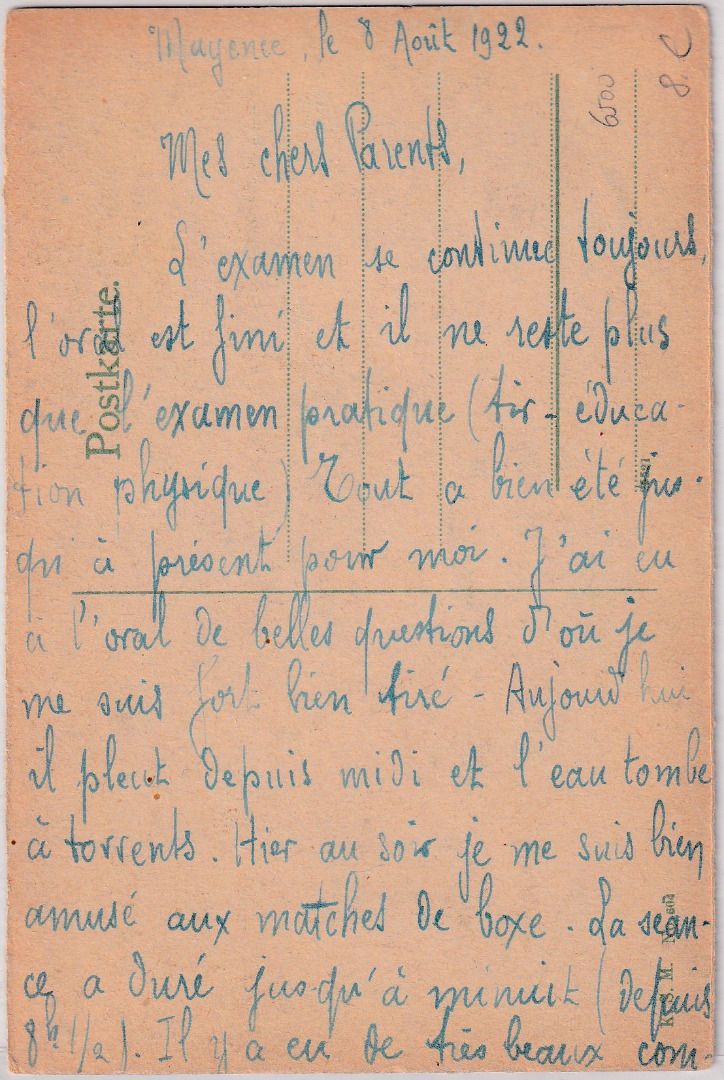 Mayence, le 8 Août 1922.
6500
8.
Mes chers Parents,
L'examen se continue toujours,
l'oral est fini et il ne reste plus
que l'examen pratique (tir - éduca-
tion physique) Tout a bien été jus-
qu'à présent pour moi. J'ai eu
à l'oral de belles questions d'où je
me suis fort bien tiré - Aujourd'hui
il pleut depuis midi et l'eau tombe
à torrents. Hier au soir je me suis bien
amusé aux matches de boxe. La séan-
ce a duré jusqu'à minuit (depuis
8h 1/2). Il y a eu de très beaux com-
Postkarte.